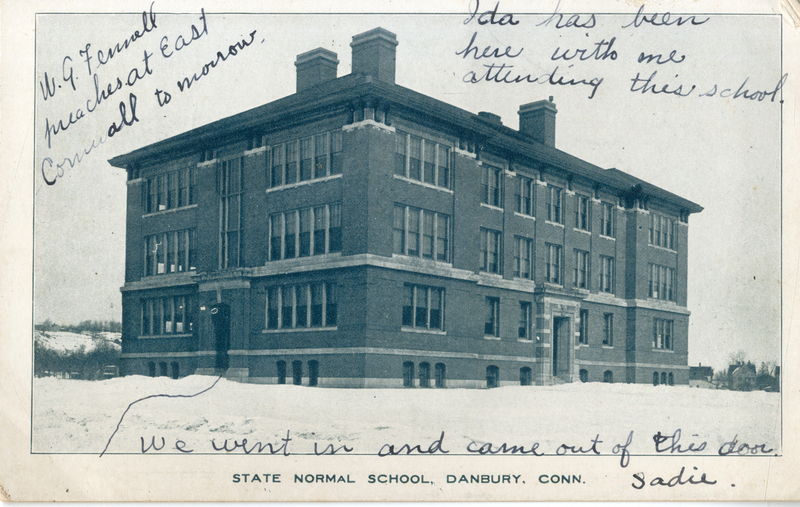 W. G. Fennell
preaches at East
Cornwall to morrow.
Ida has been
here with me
attending this school.
We went in and came out of this door.
Sadie.
STATE NORMAL SCHOOL, DANBURY, CONN.